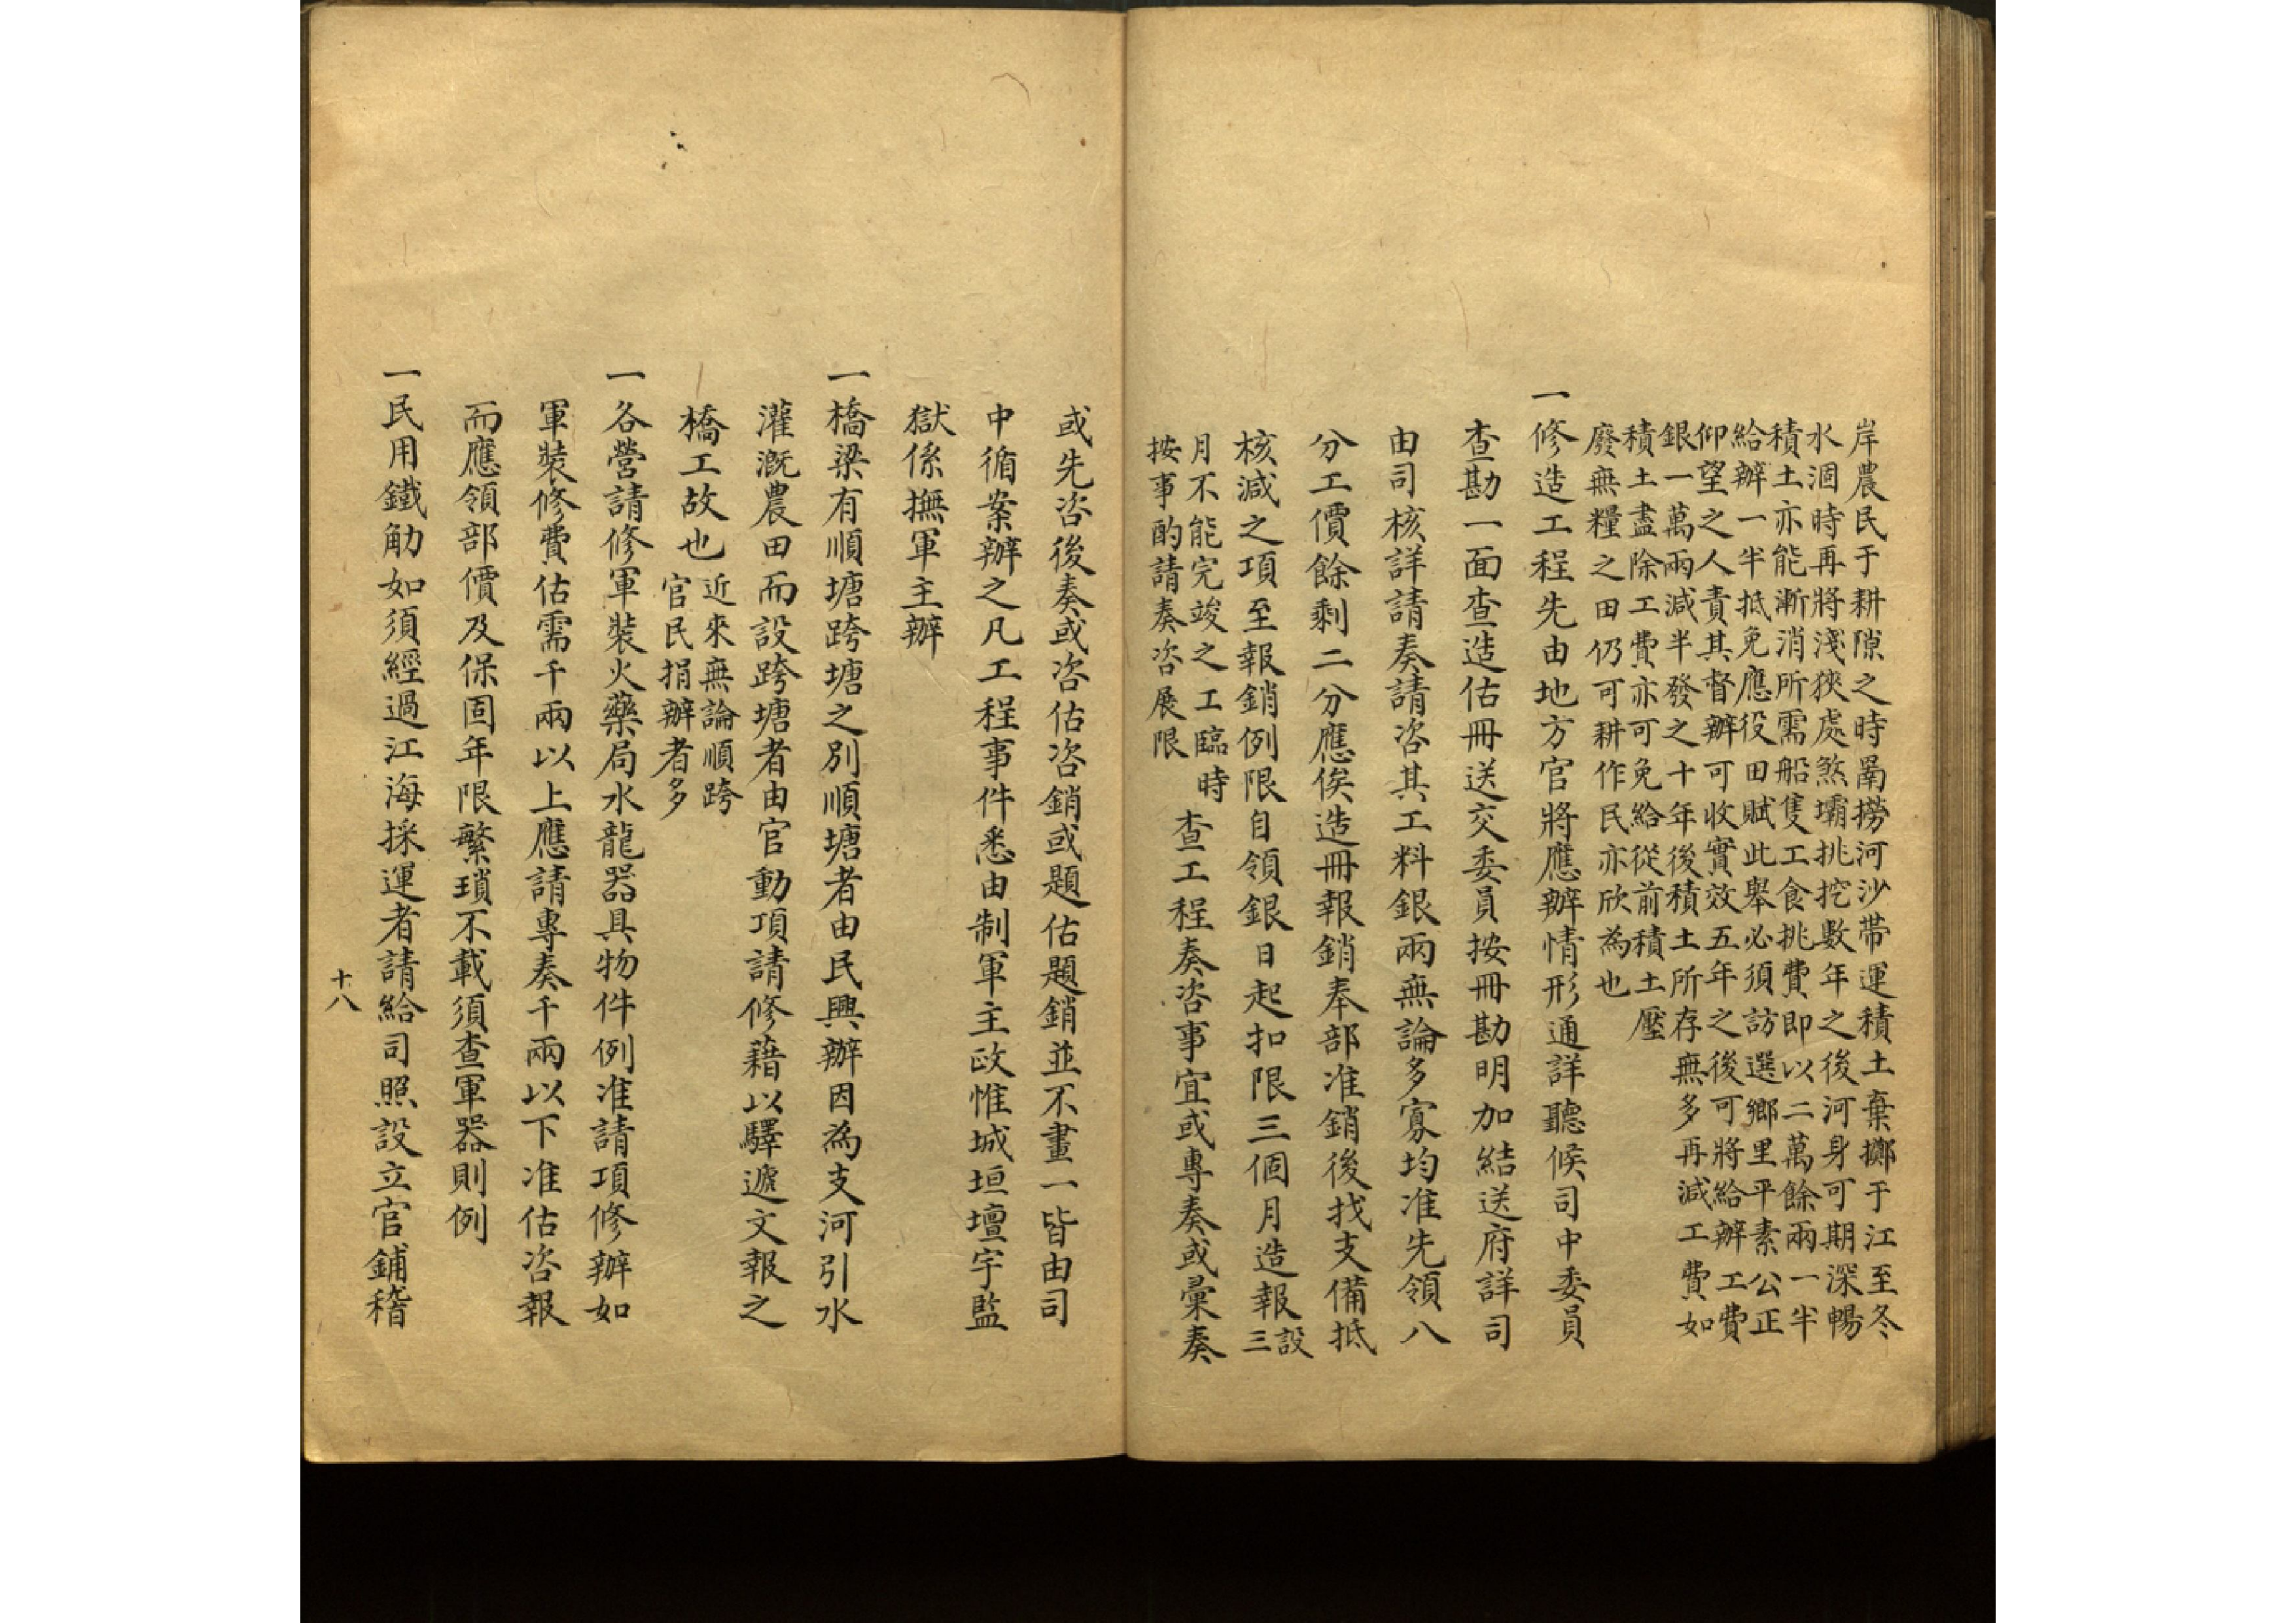 岸農民于耕隙之時罱撈河沙帶運積土棄擲于江至冬
水涸時再將淺狹處煞壩挑挖數年之後河身可期深暢
積土亦能漸消所需船隻工食挑費即以二萬餘兩一半
給辦一半抵免應役田賦此舉必須訪選鄉里平素公正
仰望之人責其督辦可收實效五年之後可將給辦工費
銀一萬兩減半發之十年後積土所存無多再減工費如
積土盡除工費亦可免給從前積土壓
廢無糧之田仍可耕作民亦欣為也
一修造工程先由地方官將應辦情形通詳聽候司中委員
查勘一面查造估冊送交委員按冊勘明加結送府詳司
由司核詳請奏請咨其工料銀兩無論多寡均准先領八
分工價餘剩二分應俟造冊報銷奉部准銷後找支備抵
核減之項至報銷例限自領銀日起扣限三個月造報設三
月不能完竣之工臨時
按事酌請奏咨展限
查工程奏咨事宜或專奏或彙奏
或先咨後奏或咨估咨銷或題估題銷並不畫一皆由司
中循案辦之凡工程事件悉由制軍主政惟城垣壇宇監
獄係撫軍主辦
一橋梁有順塘跨塘之別順塘者由民興辦因為支河引水
灌溉農田而設跨塘者由官動項請修藉以驛遞文報之
橋工故也近來無論順跨
官民捐辦者多
一各營請修軍裝火藥局水龍器具物件例准請項修辦如
軍裝修費估需千兩以上應請專奏千兩以下准估咨報
而應領部價及保固年限繁瑣不載須查軍器則例
一民用鐵觔如須經過江海採運者請給司照設立官鋪稽
十八